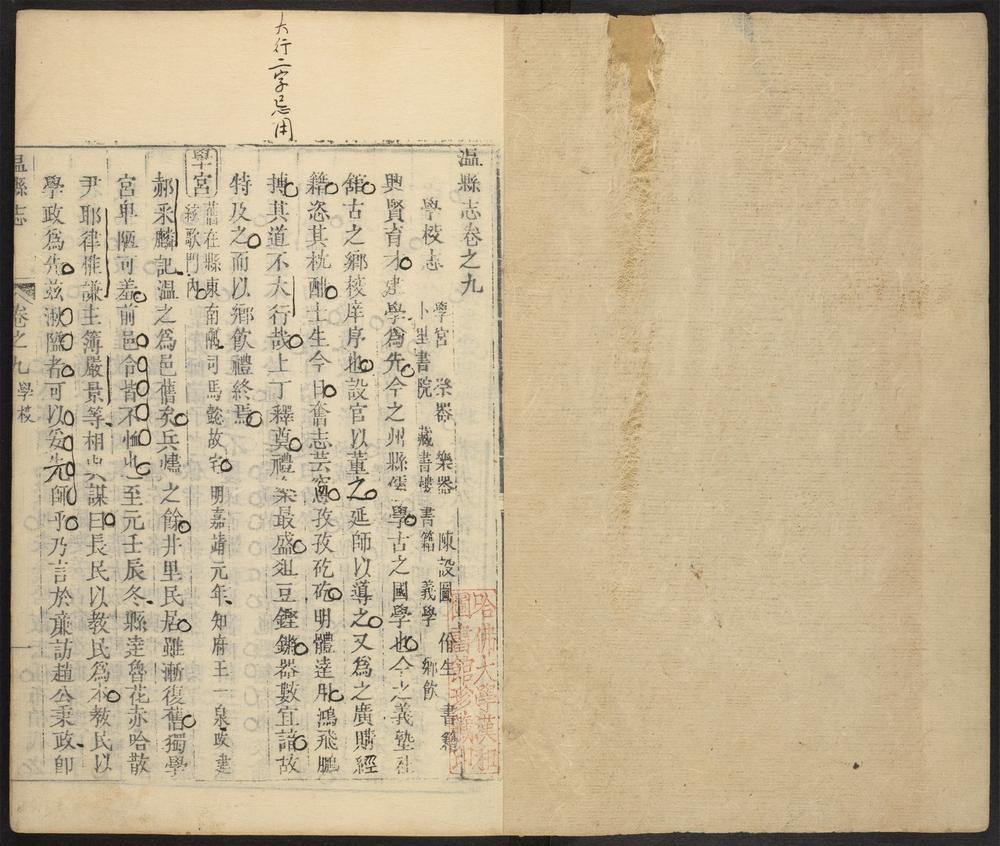 大行二字忌用
温縣志卷之九
學校志
學宮 祭器 樂器 陳設圖 佾生 書籍
卜里書院 藏書樓 書籍 義學 鄉飲
興賢育才建學爲先今之州縣儒學古之國學也今之義塾社
舘古之鄉校庠序也設官以董之延師以導之又爲之廣購經
籍恣其枕酣士生今日奮志芸窻孜孜矻矻明體逹用鴻飛鵬
摶其道不大行哉上丁釋奠禮樂最盛俎豆鏗鏘器數宜諳故
特及之而以鄉飲禮終焉
學宮
舊在縣東南隅司馬懿故宅明嘉靖元年知府王一泉改建
絃歌門内
郝采麟記温之爲邑舊矣兵燼之餘井里民居雖漸復舊獨學
宮卑陋可羞前邑令皆不恤也至元壬辰冬縣逹魯花赤哈散
尹耶律惟謙主簿嚴景等相與謀曰長民以教民爲本教民以
學政爲先兹湫隘者可以妥先師乎乃言於亷訪趙公秉政卽
温縣志
卷之九 學校
一
哈佛大學漢和圖書館珍藏印